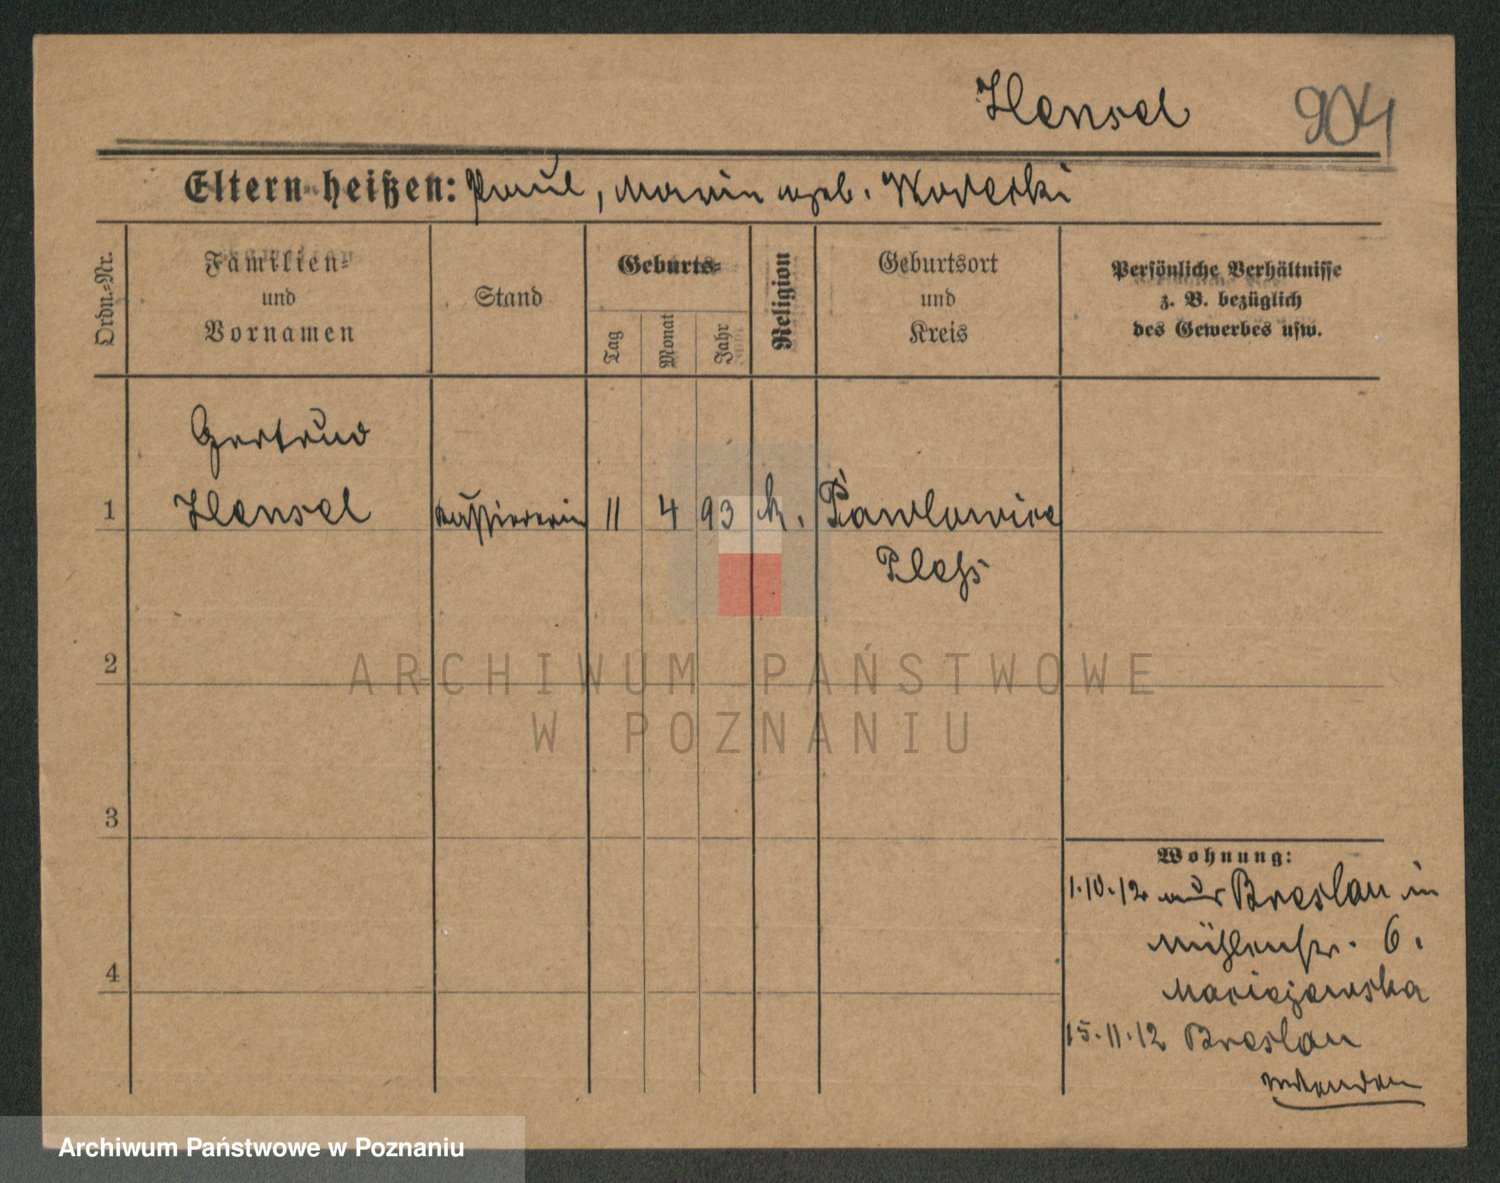 Hensel 904
Eltern heißen: Paul, Marie geb. Woleski
Ordn.-Nr.
Familien-
und
Vornamen
Stand
Geburts-
Tag
Monat
Jahr
Religion
Geburtsort
und
Kreis
Persönliche Verhältnisse
z. B. bezüglich
des Gewerbes usw.
Gertrud
1 Hensel Kassiererin 11 4 93 k. Pawlowice
Pleß
2
ARCHIWUM PAŃSTWOWE
W POZNANIU
3
Wohnung:
1.10.12 aus Breslau in
Mühlenstr. 6.
Maciejewska
4
15.11.12 Breslau
wenden
Archiwum Państwowe w Poznaniu